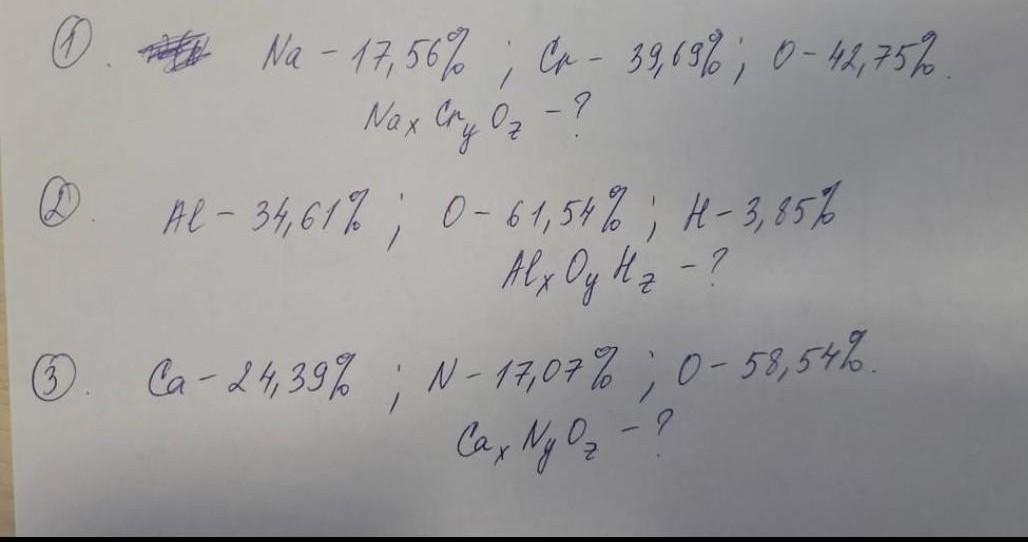 ① . Na - 17,56% ; Cr - 39,69% ; O - 42,75% .
NaxCryOz - ?
② . Al - 34,61% ; O - 61,54% ; H - 3,85%
AlxOyHz - ?
③ . Ca - 24,39% ; N - 17,07% ; O - 58,54% .
CaxNyOz - ?